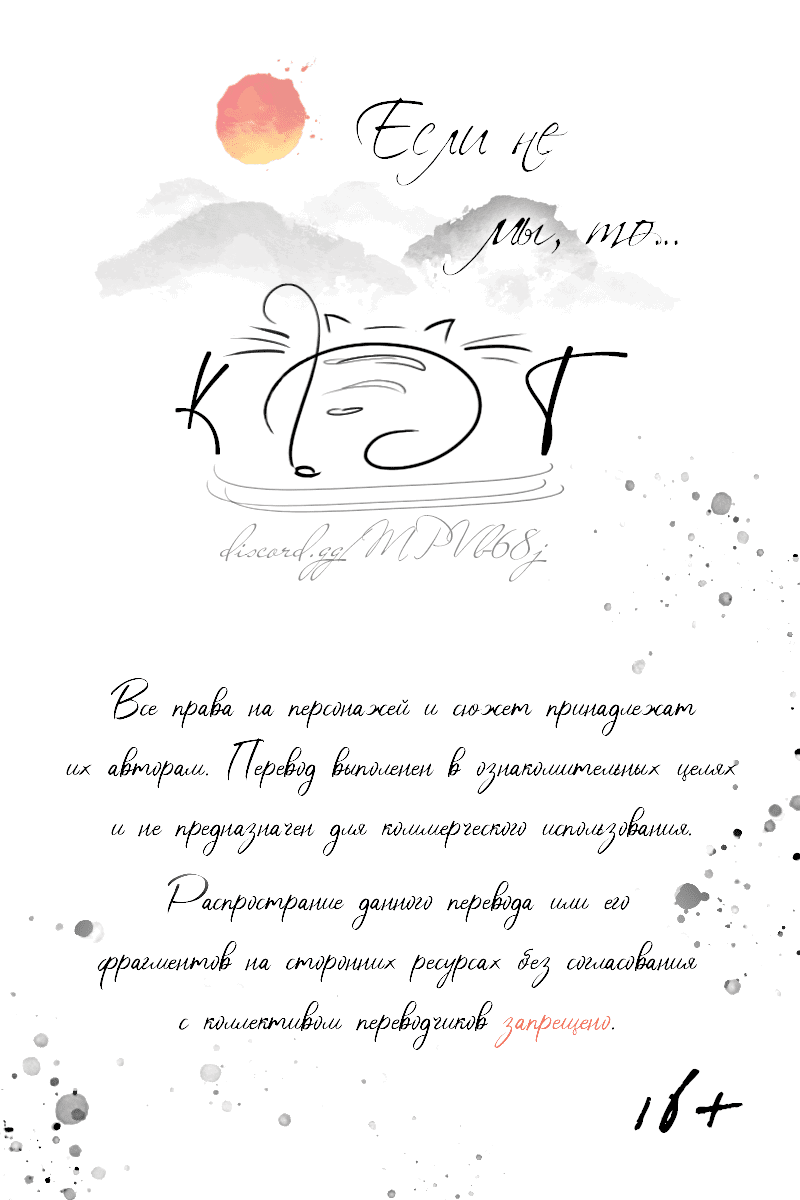 Если не
мы, то...
КОТ
discord.gg/MPVb68j
Все права на персонажей и сюжет принадлежат
их авторам. Перевод выполенен в ознакомительных целях
и не предназначен для коммерческого использования.
Распростране данного перевода или его
фрагментов на сторонних ресурсах без согласования
с коллективом переводчиков запрещено.
16+